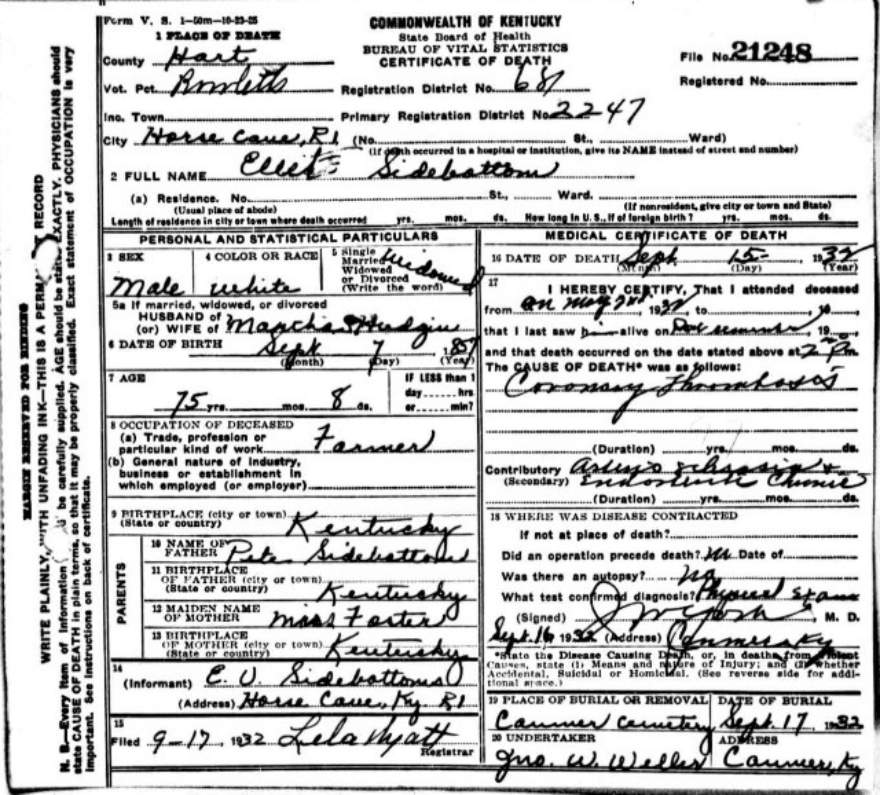 Form V. S. 1-50m-10-23-25
COMMONWEALTH OF KENTUCKY
State Board of Health
BUREAU OF VITAL STATISTICS
CERTIFICATE OF DEATH
File No. 21248
Registered No.
1 PLACE OF DEATH
County Hart
Vot. Pct. Rowletts
Registration District No. 681
Inc. Town
Primary Registration District No. 2247
City Horse Cave, R1 (No. St., Ward)
(If death occurred in a hospital or institution, give its NAME instead of street and number)
2 FULL NAME Sidebottom
(a) Residence. No. St., Ward.
(Usual place of abode) (If nonresident, give city or town and State)
Length of residence in city or town where death occurred yrs. mos. ds. How long in U. S., if of foreign birth? yrs. mos. ds.
PERSONAL AND STATISTICAL PARTICULARS
3 SEX
Male
4 COLOR OR RACE
white
5 Single
Married
Widowed
or Divorced
(Write the word)
Widowed
5a If married, widowed, or divorced
HUSBAND of
(or) WIFE of Martha Hudgin
6 DATE OF BIRTH Sept 7 1857
(Month) (Day) (Year)
7 AGE
75 yrs. mos. 8 ds.
IF LESS than 1
day hrs
or min?
8 OCCUPATION OF DECEASED
(a) Trade, profession or
particular kind of work Farmer
(b) General nature of industry,
business or establishment in
which employed (or employer)
9 BIRTHPLACE (city or town)
(State or country) Kentucky
PARENTS
10 NAME OF
FATHER Pete Sidebottom
11 BIRTHPLACE
OF FATHER (city or town)
(State or country) Kentucky
12 MAIDEN NAME
OF MOTHER Miss Foster
13 BIRTHPLACE
OF MOTHER (city or town)
(State or country) Kentucky
14
(Informant) E. U. Sidebottom
(Address) Horse Cave, Ky. R1
15
Filed 9-17 1932 Lela Wyatt
Registrar
MEDICAL CERTIFICATE OF DEATH
16 DATE OF DEATH Sept 15 1932
(Month) (Day) (Year)
17
I HEREBY CERTIFY, That I attended deceased
from on May 2nd, 1932, to , 19
that I last saw h alive on , 19
and that death occurred on the date stated above at 2 Pm.
The CAUSE OF DEATH* was as follows:
Coronary Thrombosis
(Duration) yrs. mos. ds.
Contributory
(Secondary)
(Duration) yrs. mos. ds.
18 WHERE WAS DISEASE CONTRACTED
If not at place of death?
Did an operation precede death? no Date of
Was there an autopsy? no
What test confirmed diagnosis? Physical Exam
(Signed) , M. D.
Sept. 16 1932 (Address) Canmer Ky
*State the Disease Causing Death, or, in deaths from Violent
Causes, state (1) Means and nature of Injury; and (2) whether
Accidental, Suicidal or Homicidal. (See reverse side for addi-
tional space.)
19 PLACE OF BURIAL OR REMOVAL
Canmer Cemetery
DATE OF BURIAL
Sept. 17 1932
20 UNDERTAKER
Jno. W. Weller
ADDRESS
Canmer, Ky
MARGIN RESERVED FOR BINDING
WRITE PLAINLY, WITH UNFADING INK—THIS IS A RECORD
N. B.—Every item of information be carefully supplied. AGE should be stated EXACTLY. PHYSICIANS should
state CAUSE OF DEATH in plain terms, so that it may be properly classified. Exact statement of OCCUPATION is very
important. See instructions on back of certificate.